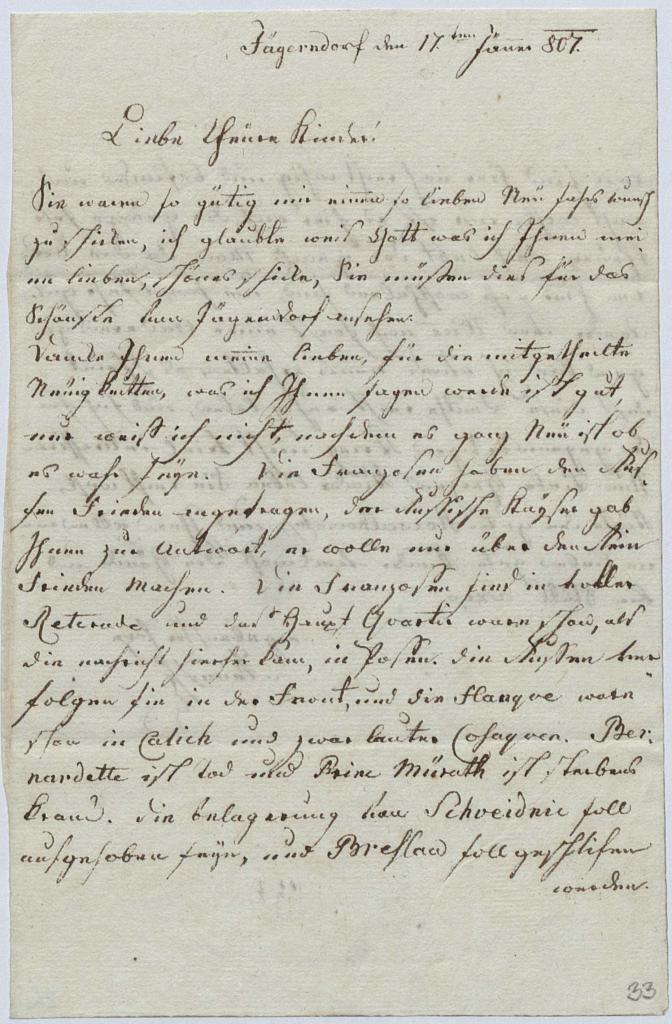 Jägerndorf den 17.ten Jäner 807.
Liebe theure Kinder!
Sie waren so gütig mir einen so lieben Neu Jahrs wunsch
zu schicken, ich glaubte weis Gott was ich Ihnen mei
ne lieben, schönes schicke, Sie müßen dies für das
Schönste von Jägerndorf ansehen.
Danke Ihnen meine lieben, für die mitgetheilte
Neuigkeitten, was ich Ihnen sagen werde ist gut,
nur weiß ich nicht, nachdem es ganz Neü ist ob
es wahr seye. Die Franzosen haben den Rus¬
sen Frieden angetragen, der Rußische Kayser gab
Ihnen zur Antwort, er wolle nur über den Rein
Frieden machen. Die Franzosen sind in voller
Reterade und das Haupt Quartir ware schon, als
die nachricht hierher kam, in Posen. die Rußen ver
folgen sie in der Front, und die Flanque ware
schon in Calich und zwar lauter Cosaquen. Ber¬
nardette ist tod und Prinz Mürath ist sterbens
krank. die belagerung von Schveidniz soll
aufgehoben seyn, und Breslau soll geschlifen
werden.
33